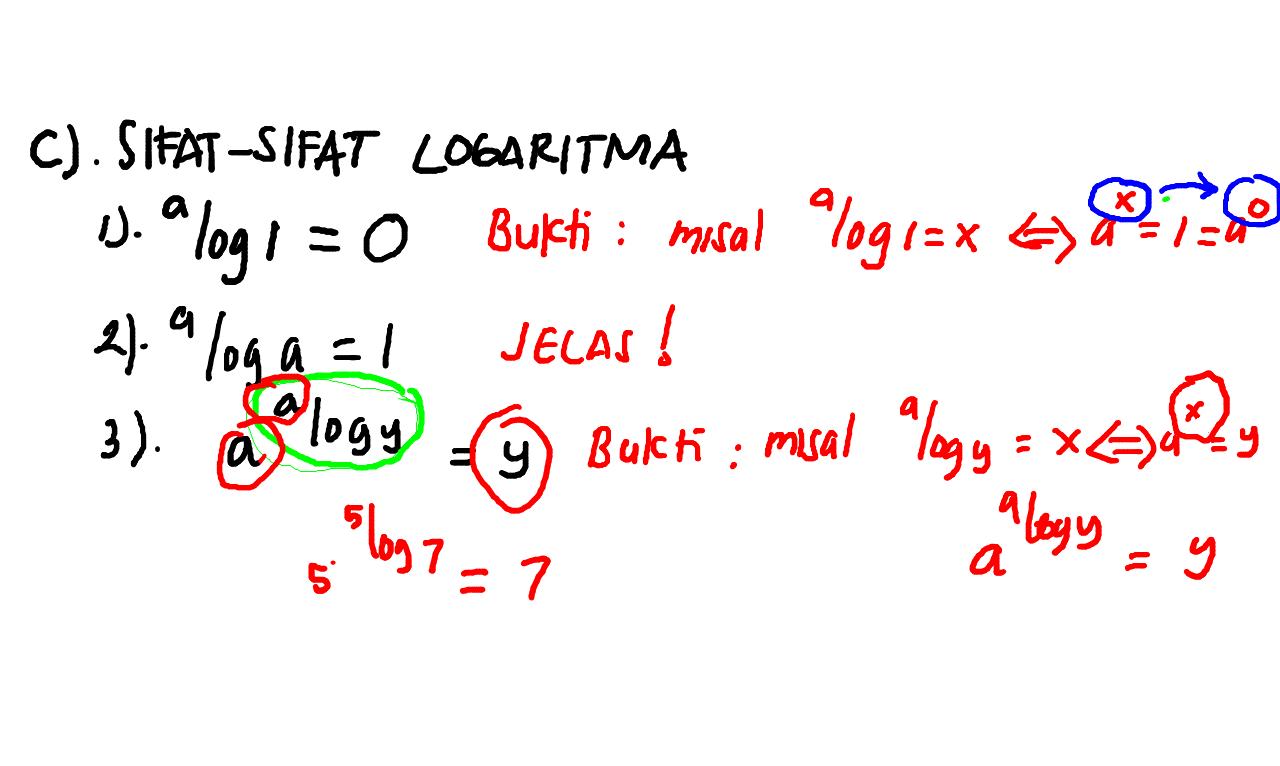 C). SIFAT-SIFAT LOGARITMA
1). ᵃlog 1 = 0 Bukti : misal ᵃlog 1 = x ⇔ aˣ = 1 = a⁰
2). ᵃlog a = 1 JELAS !
3). a^(ᵃlog y) = y Bukti : misal ᵃlog y = x ⇔ aˣ = y
5^(⁵log 7) = 7 a^(ᵃlog y) = y